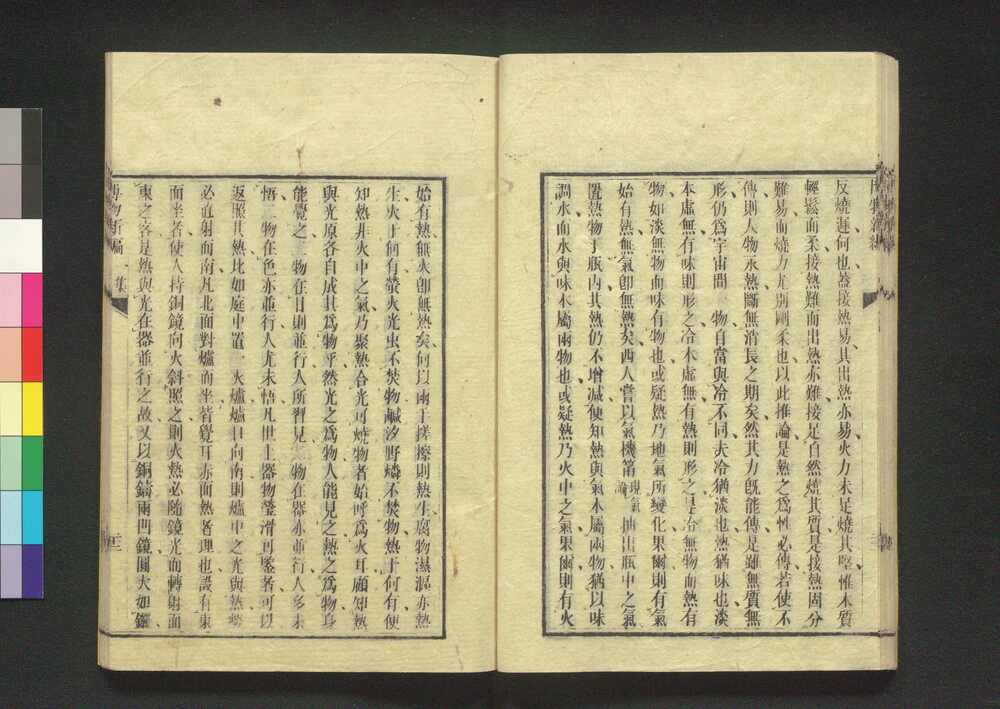 反燒遲何也蓋接熱易其出熱亦易火力未足燒其堅惟木質
輕鬆而柔接熱難而出熱亦難接足自然燒其質是接熱固分
難易而燒力尤別剛柔也以此推論是熱之為性必傳若使不
傳則人物永熱斷無消長之期矣然其力旣能傳是雖無質無
形仍爲宇宙間一物自當與冷不同夫冷猶淡也熱猶味也淡
本虛無有味則形之冷本虛無有熱則形之耳冷無物而熱有
物如淡無物而味有物也或疑熱乃地氣所變化果爾則有氣
始有熱無氣卽無熱矣西人嘗以氣機筩現氣論抽出瓶中之氣
置熱物于瓶內其熱仍不增減便知熱與氣本屬兩物猶以味
調水而水與味本屬兩物也或疑熱乃火中之氣果爾則有火
始有熱無火卽無熱矣何以兩手搓擦則熱生腐物濕漚亦熱
生火于何有螢火光虫不焚物鹹汐野燐不焚物熱于何有便
知熱非火中之氣乃聚熱合光可燒物者始呼爲火耳顧知熱
與光原各自成其爲物乎然光之爲物人能見之熱之爲物身
能覺之二物在日則並行人所習見二物在器亦並行人多未
悟二物在色亦並行人尤未悟凡世上器物瑩滑可鑒者可以
返照其熱比如庭中置一火爐爐口向南則爐中之光與熱勢
必直射而南凡北面對爐而坐皆覺耳赤面熱者理也設有東
面坐者使人持銅鏡向火斜照之則火熱必隨鏡光而轉射面
東之客是熱與光在器並行之故又以銅鑄兩凹鏡圓大如鑼
博物新編 一集